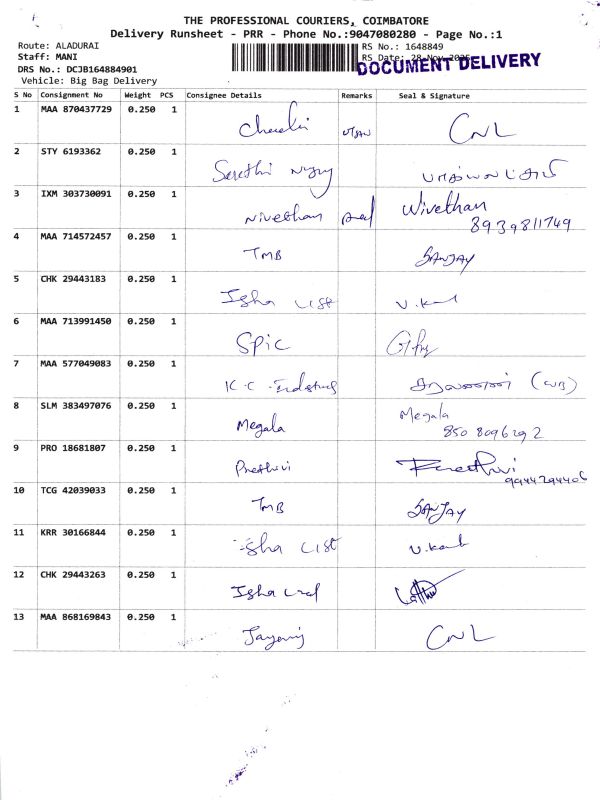 THE PROFESSIONAL COURIERS, COIMBATORE
Delivery Runsheet - PRR - Phone No.:9047080280 - Page No.:1
Route: ALADURAI
Staff: MANI
DRS No.: DCJB164884901
Vehicle: Big Bag Delivery
RS No.: 1648849
RS Date: 28-Nov-2025
DOCUMENT DELIVERY
S No Consignment No Weight PCS Consignee Details Remarks Seal & Signature
1 MAA 870437729 0.250 1 CNL
2 STY 6193362 0.250 1
3 IXM 303730091 0.250 1 Nivethan Wivethan
8939811749
4 MAA 714572457 0.250 1 TMB SANJAY
5 CHK 29443183 0.250 1 Isha List
6 MAA 713991450 0.250 1 SPIC
7 MAA 577049083 0.250 1 K.C.
8 SLM 383497076 0.250 1 Megala Megala
850 8096292
9 PRO 18681807 0.250 1 Preethivi
9944294406
10 TCG 42039033 0.250 1 TMB SANJAY
11 KRR 30166844 0.250 1 Isha LIST
12 CHK 29443263 0.250 1 Isha
13 MAA 868169843 0.250 1 CNL